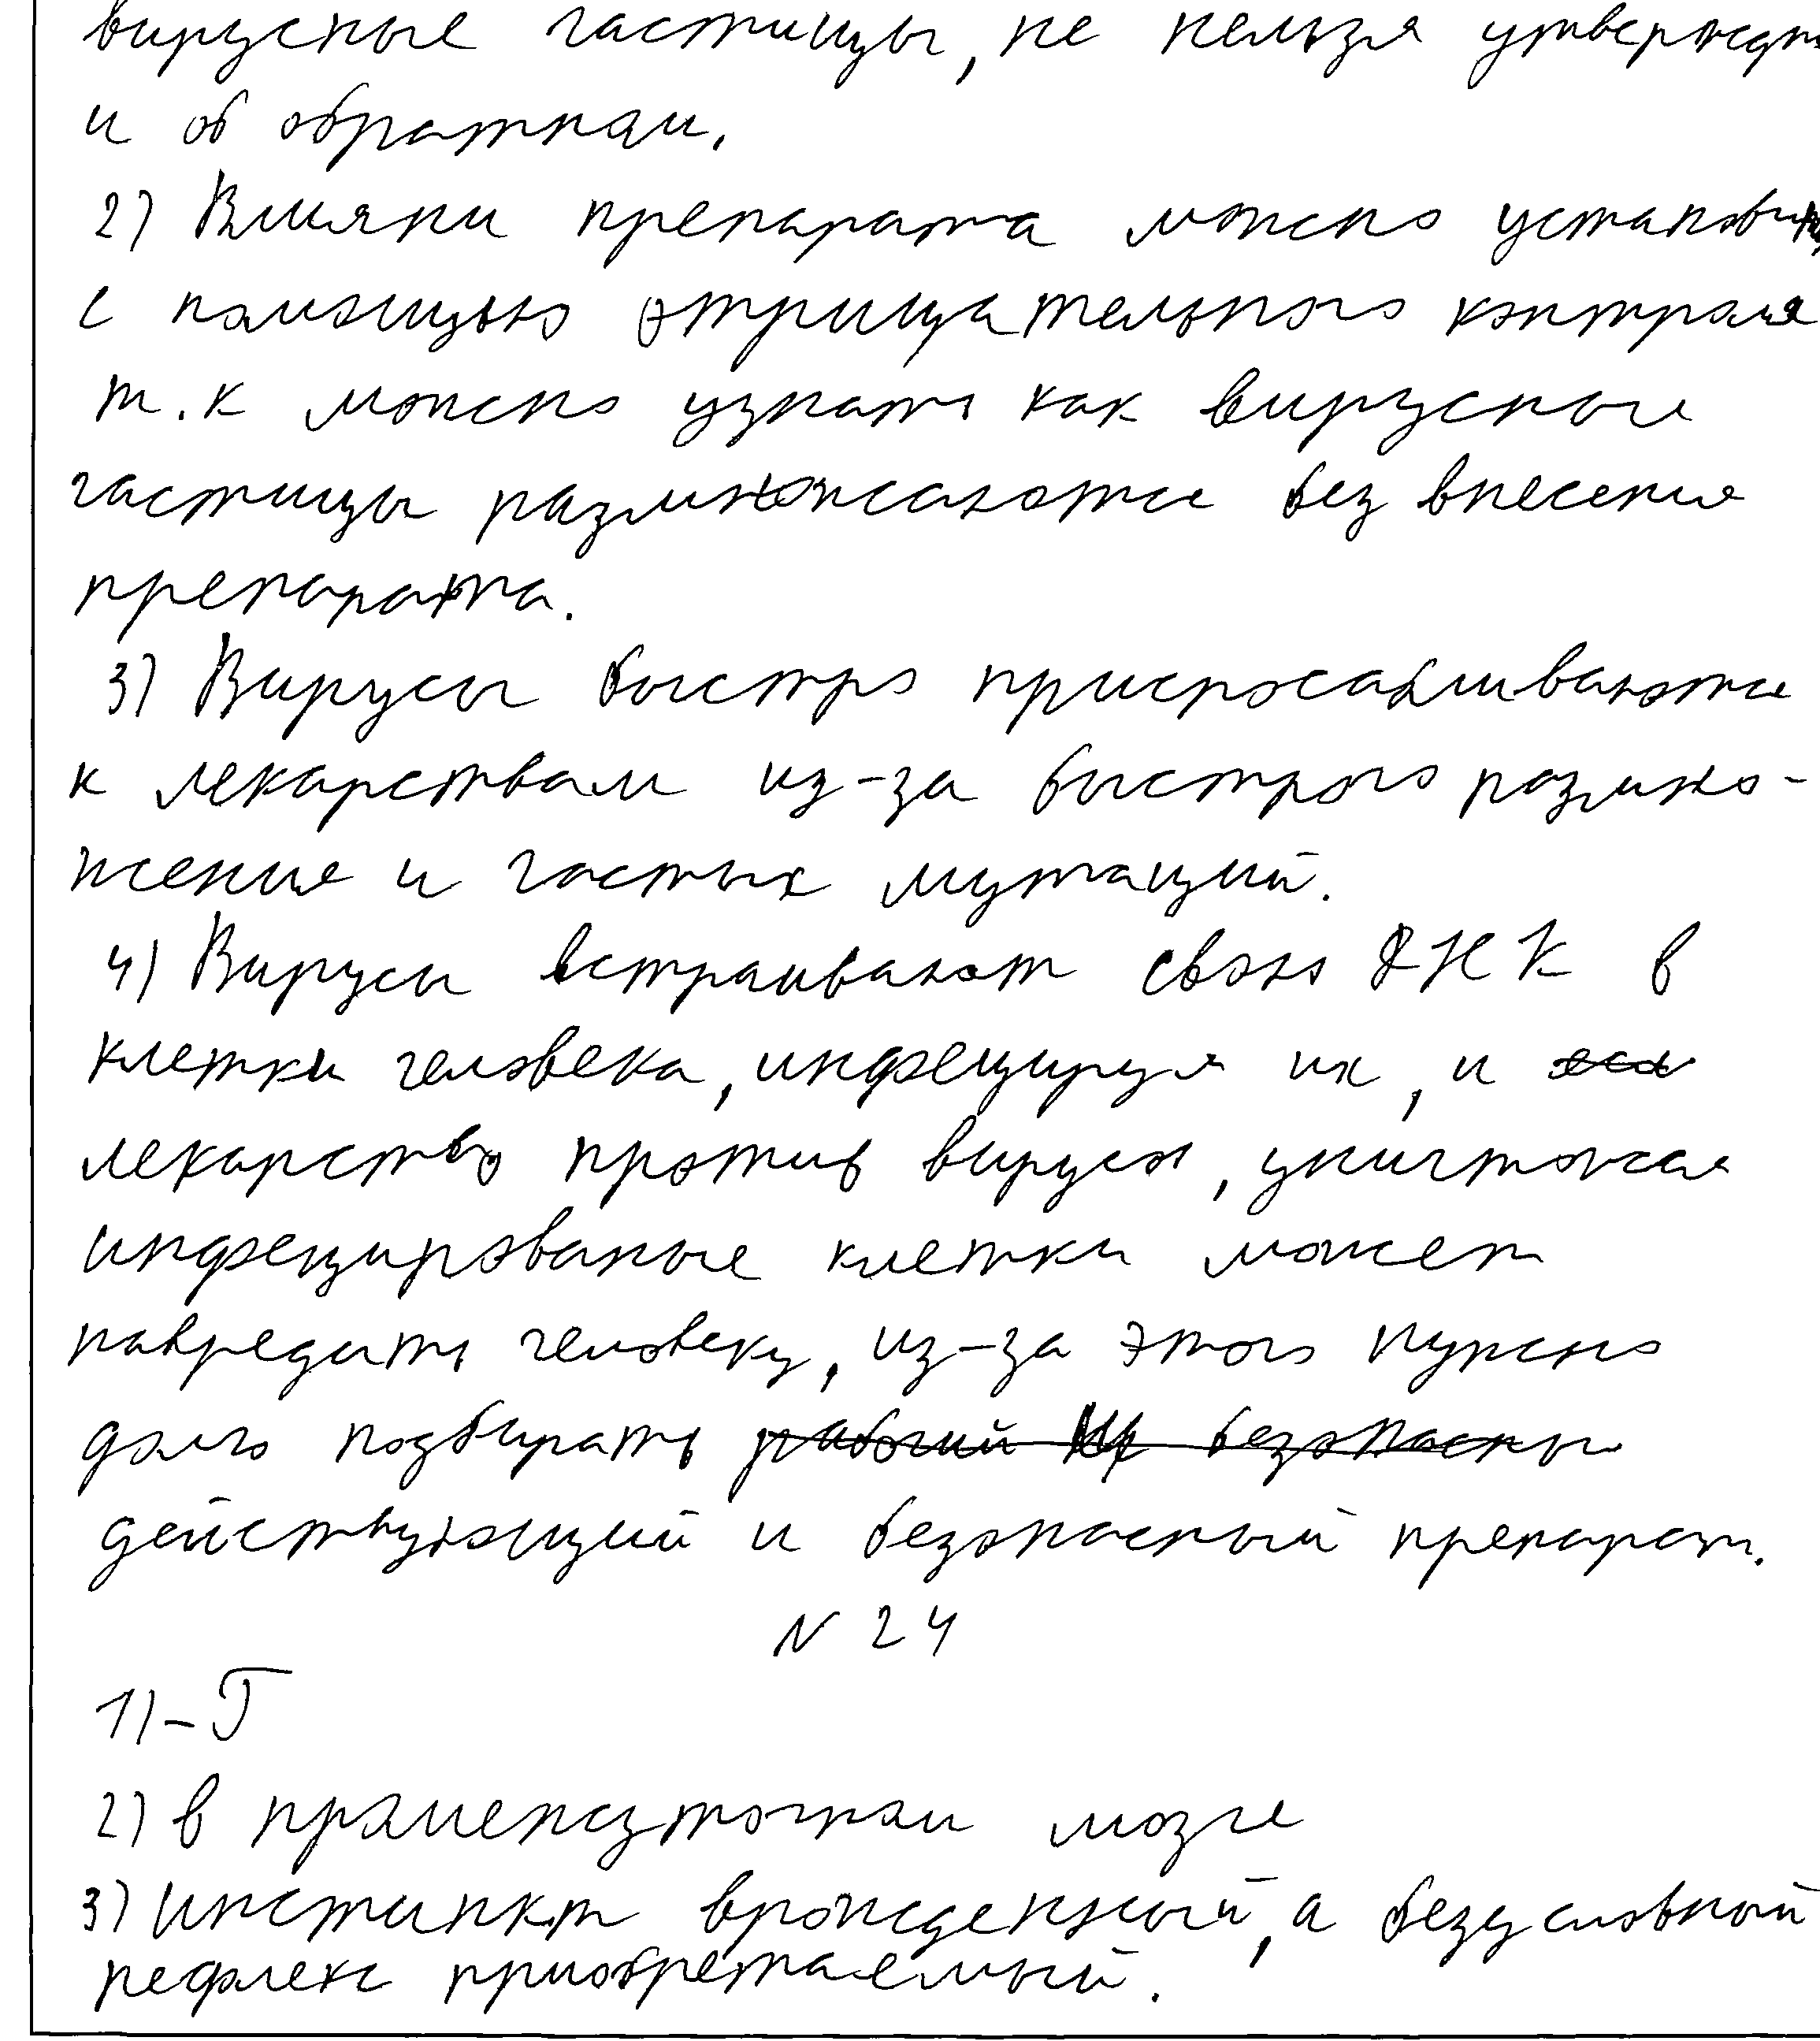 вирусные частицы, не нельзя утверждать
и об обратном.
2) Влияни препарата можно установить
с помощью отрицательного контроля
т.к можно узнать как вирусные
частицы размножаются без внесения
препарата.
3) Вирусы быстро приспосабливаются
к лекарствам из-за быстрого размно-
жения и частых мутаций.
4) Вирусы встраивают свою ДНК в
клетки человека, инфецируя их, и
лекарство против вируса, уничтожая
инфецированые клетки может
навредить человеку, из-за этого нужно
долго подбирать рабочий безопасны
действующий и безопасный препарат.
N 24
1)-Г
2) в промежуточном мозге
3) инстинкт врожденный, а безусловный
рефлекс приобретаемый.